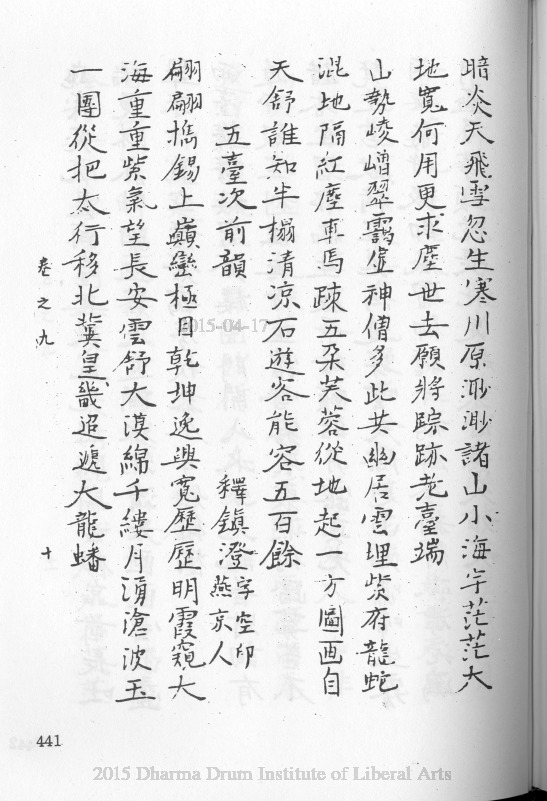 暗炎天飛雪忽生寒川原渺渺諸山小海宇茫茫大
地寬何用更求塵世去願將踪跡老臺端
山勢崚嶒翠靄虛神僧多此共幽居雲埋紫府龍蛇
混地隔紅塵車馬踈五朵芙蓉從地起一方圖画自
天舒誰知半榻清凉石遊客能容五百餘
五臺次前韻 釋鎮澄字空印燕京人
翩翩擕錫上巔巒極目乾坤逸興寬歷歷明霞窺大
海重重紫氣望長安雲舒大漠綿千縷月湧滄波玉
一團從把太行移北冀皇畿迢遞大龍蟠
卷之九 十
441
2015-04-17
2015 Dharma Drum Institute of Liberal Arts